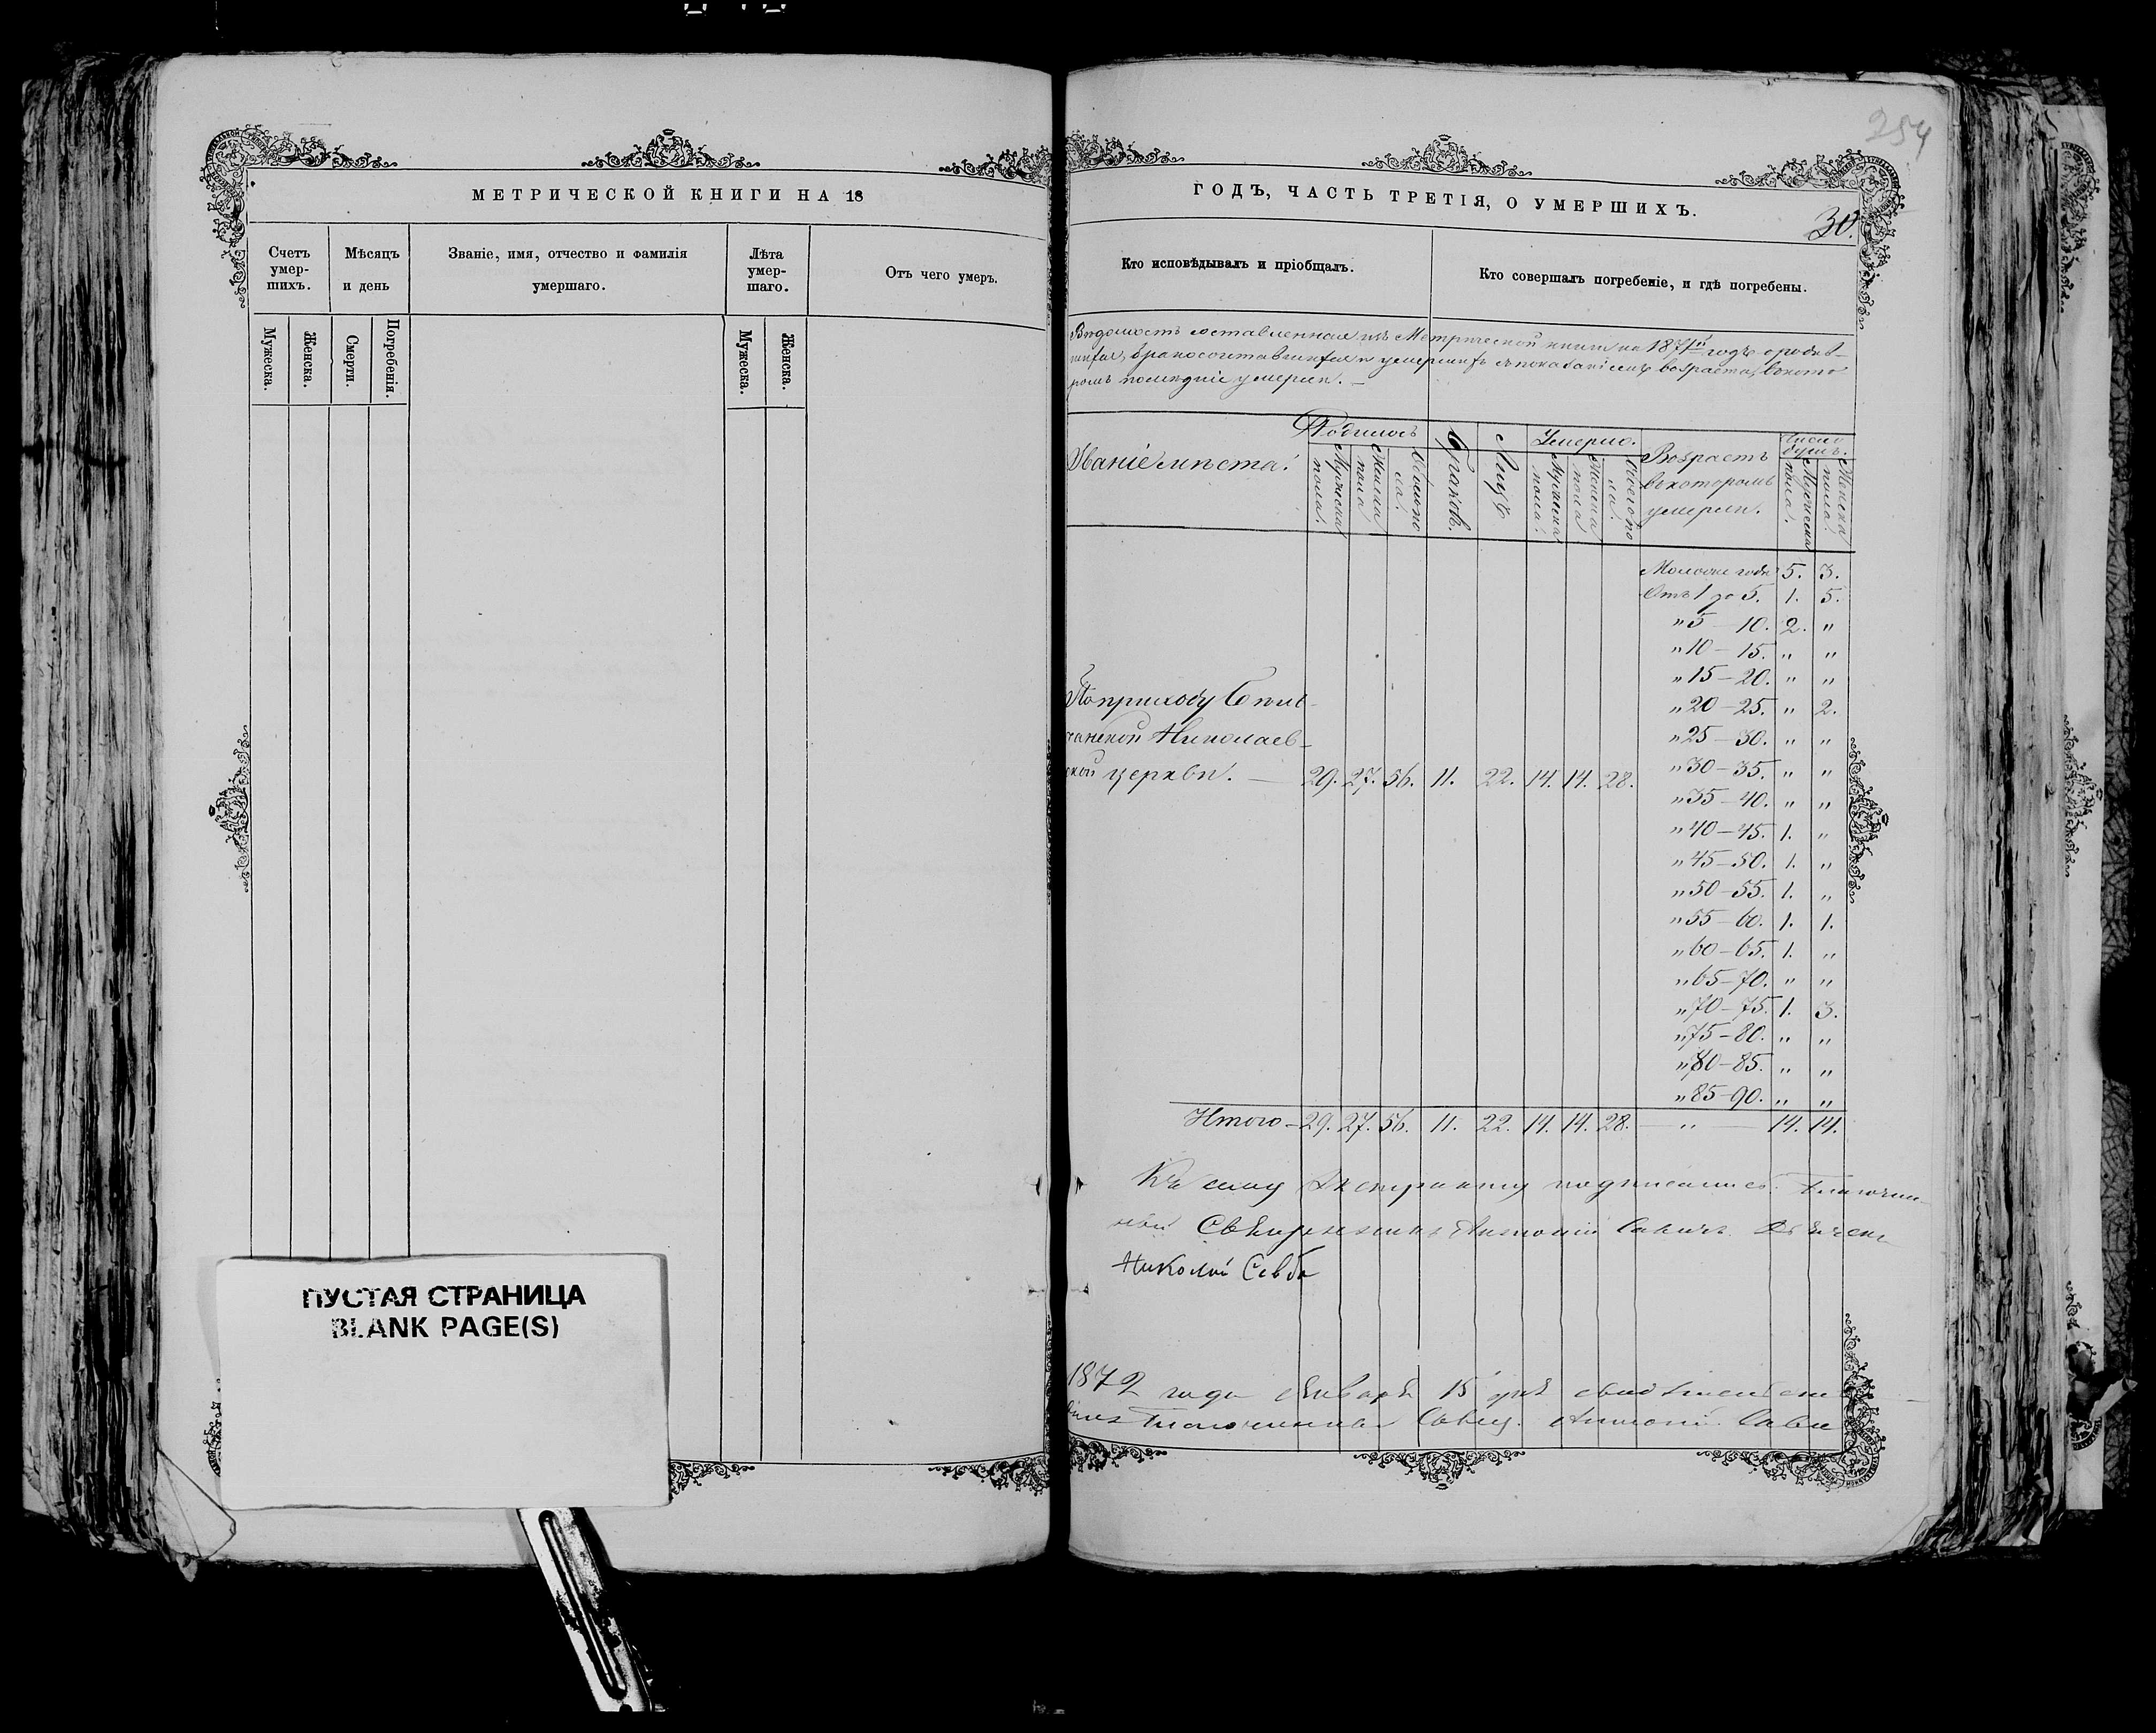 МЕТРИЧЕСКОЙ КНИГИ НА 18
Счетъ умер- шихъ.
Мѣсяцъ и день
Званіе, имя, отчество и фамилія умершаго.
Лѣта умер- шаго.
Отъ чего умеръ.
Мужеска.
Женска.
Смерти.
Погребенія.
Мужеска.
Женска.
ПУСТАЯ СТРАНИЦА
BLANK PAGE(S)
254
ГОДЪ, ЧАСТЬ ТРЕТІЯ, О УМЕРШИХЪ.
30.
Кто исповѣдывалъ и пріобщалъ.
Кто совершалъ погребеніе, и гдѣ погребены.
Вѣдомость составленная изъ Метрической книги на 1871й годъ о родив-
шихся, бракосочетавшихся и умершихъ съ показаніемъ возраста, въ кото
ромъ послѣдніе умерли. —
Званіе мѣста.
Родилось
Мужеска пола.
Женска пола
Обоего по ла.
Браковъ.
Лицъ.
Умерло.
Мужеска пола.
Женска пола
Обоего по ла.
Возрастъ
въ которомъ
умерли.
Число душъ.
Мужеска пола.
Женска пола.
года 5. 3.
Отъ 1 до 5. 1. 5.
„ 5 — 10. 2. „
„ 10 — 15. „ „
„ 15 — 20. „ „
„ 20 — 25. „ 2.
„ 25 — 30. „ „
„ 30 — 35. „ „
„ 35 — 40. „ „
„ 40 — 45. 1. „
„ 45 — 50. 1. „
„ 50 — 55. 1. „
„ 55 — 60. 1. 1.
„ 60 — 65. 1. „
„ 65 — 70. „ „
„ 70 — 75. 1. 3.
„ 75 — 80. „ „
„ 80 — 85. „ „
„ 85 — 90. „ „
По приходу
Николаев-
ской церкви. — 29. 27. 56. 11. 22. 14. 14. 28.
Итого — 29. 27. 56. 11. 22. 14. 14. 28. — „ — 14. 14.
Къ сему Экстракту подписались: Благочин-
ный Священникъ Антоній
Николай
1872 года Января 15 дня
Благочинный Свящ. Антоній